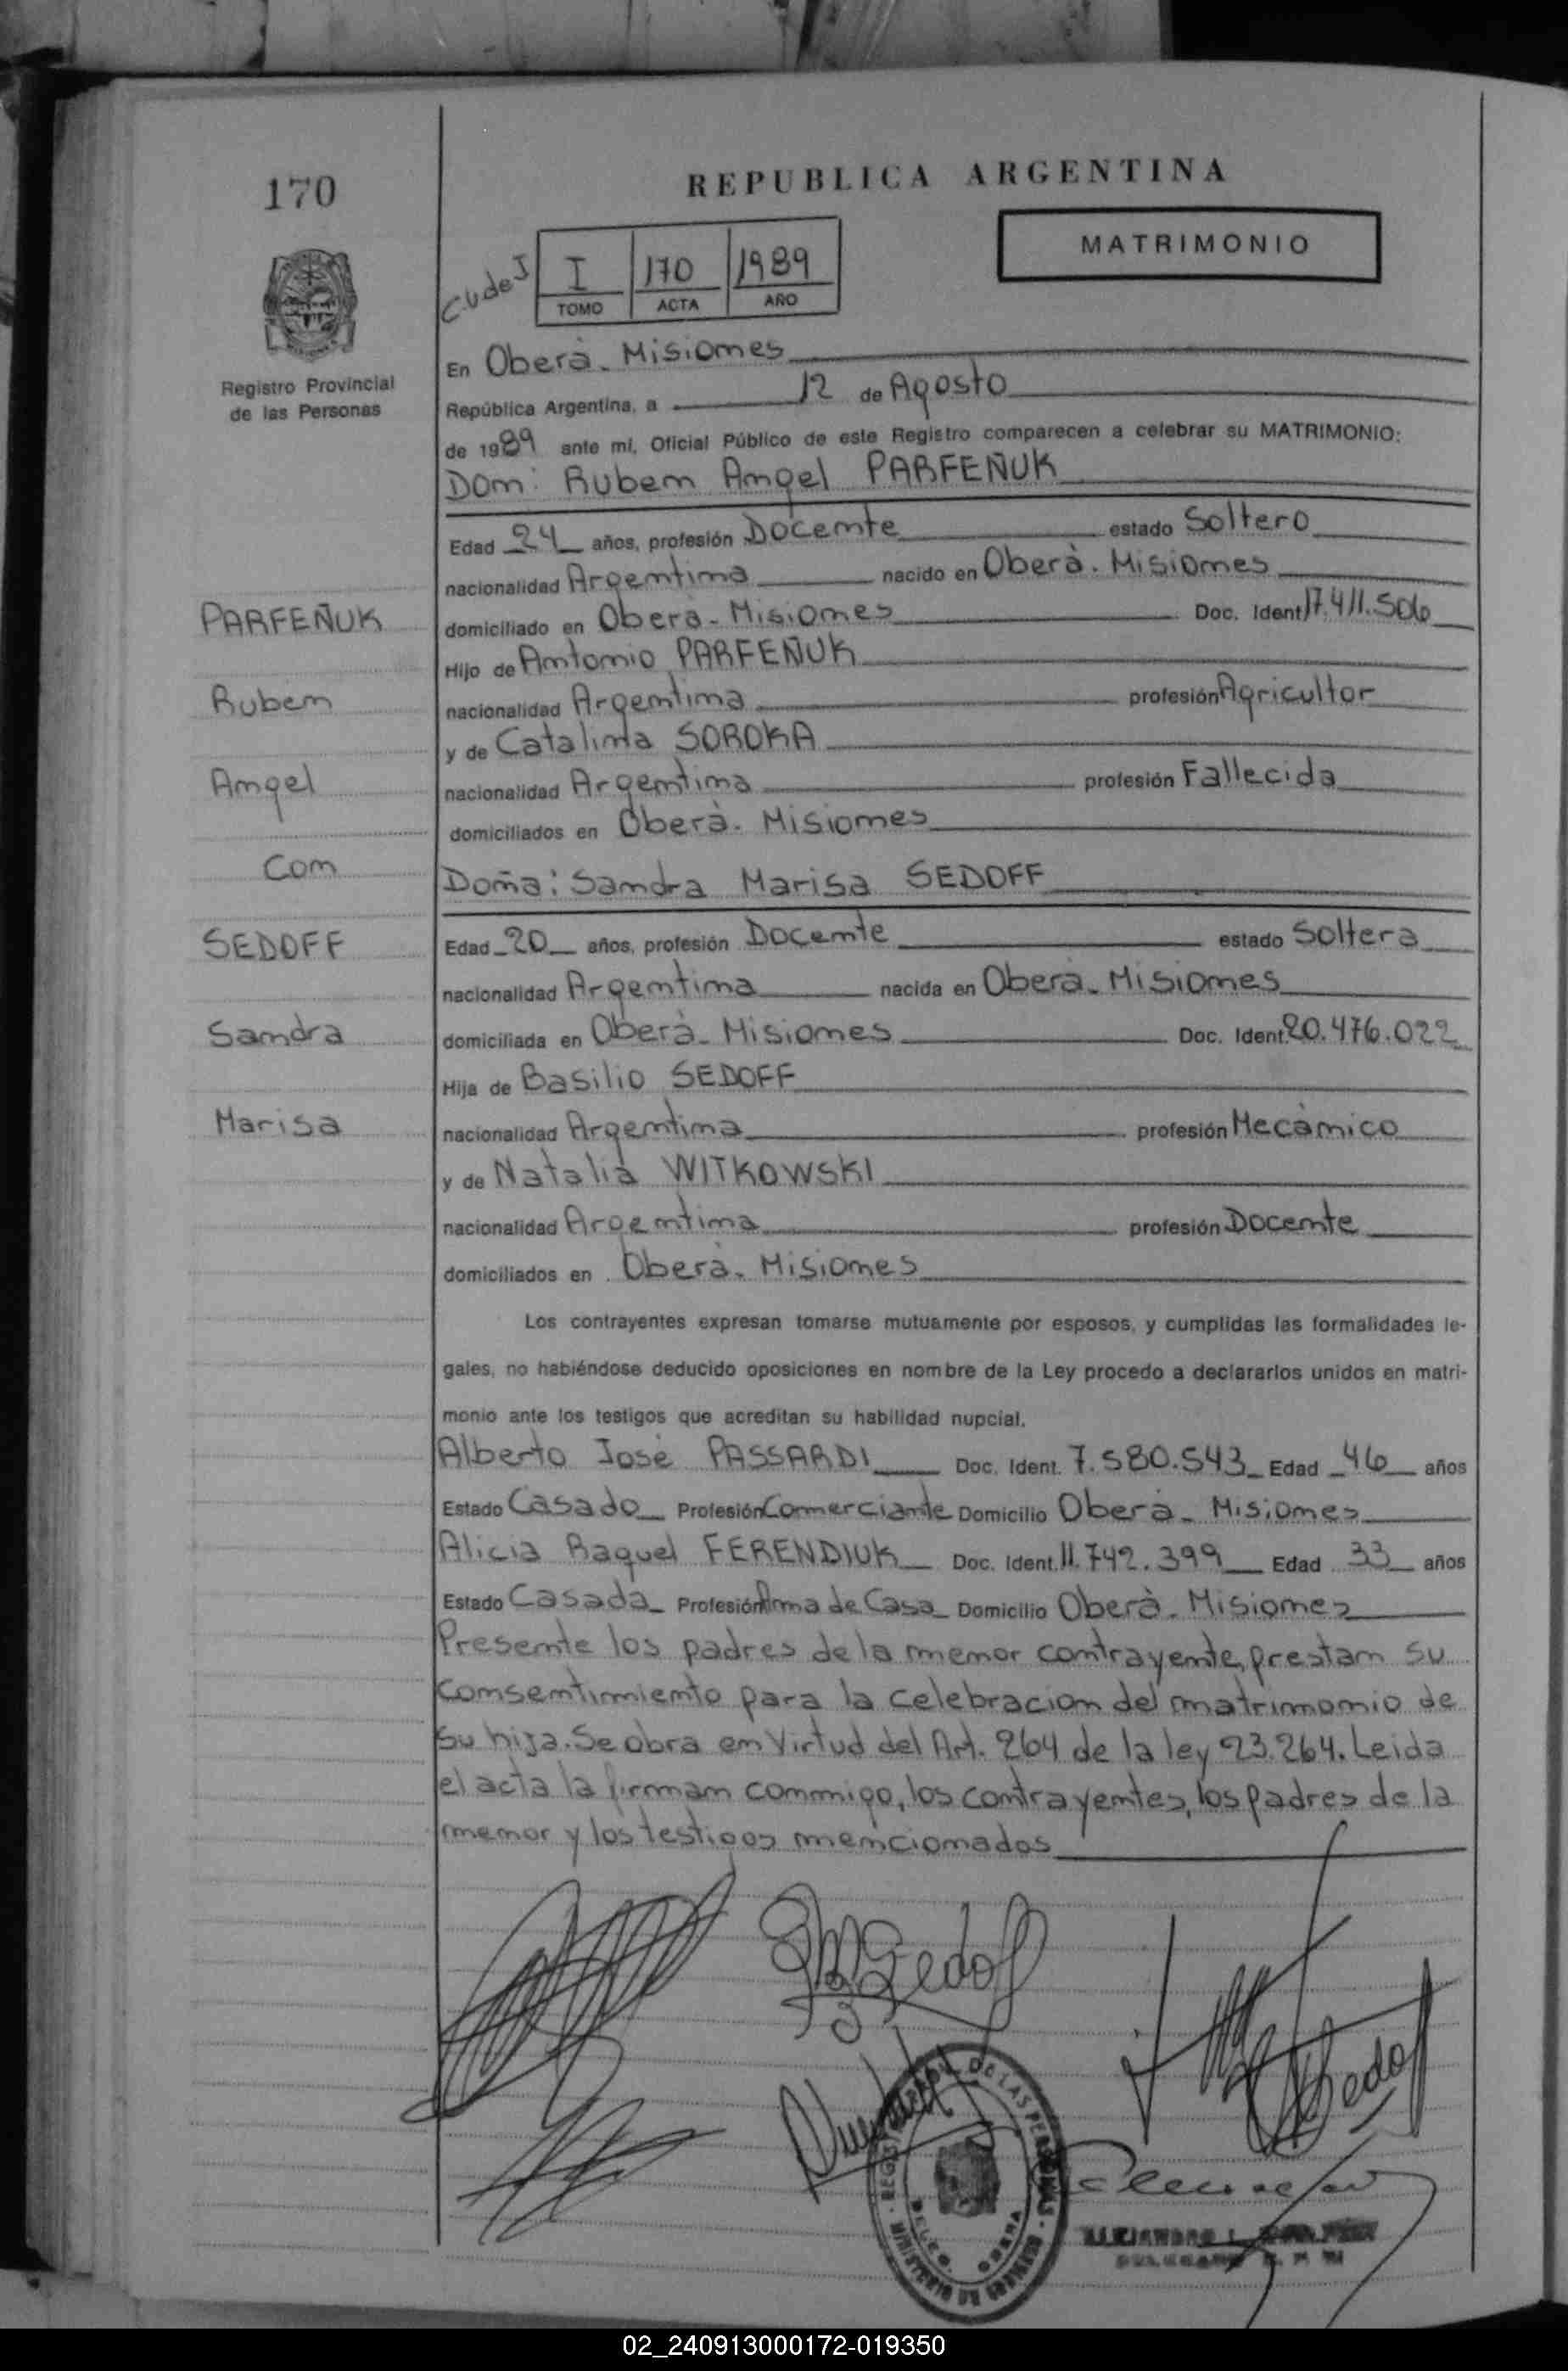 170
REPUBLICA ARGENTINA
MATRIMONIO
I 170 1989
TOMO ACTA AÑO
Registro Provincial
de las Personas
En Oberà. Misiones
República Argentina, a 12 de Agosto
de 1989 ante mi, Oficial Público de este Registro comparecen a celebrar su MATRIMONIO:
Don: Ruben Angel PARFEÑUK
Edad 24 años, profesión Docente estado Soltero
nacionalidad Argentina nacido en Oberà. Misiones
PARFEÑUK
domiciliado en Oberà. Misiones Doc. Ident. 17.411.506
Hijo de Antonio PARFEÑUK
Ruben
nacionalidad Argentina profesión Agricultor
y de Catalina SOROKA
Angel
nacionalidad Argentina profesión Fallecida
domiciliados en Oberà. Misiones
Con
Doña: Sandra Marisa SEDOFF
SEDOFF
Edad 20 años, profesión Docente estado Soltera
nacionalidad Argentina nacida en Oberà. Misiones
Sandra
domiciliada en Oberà. Misiones Doc. Ident. 20.476.022
Hija de Basilio SEDOFF
Marisa
nacionalidad Argentina profesión Mecànico
y de Natalia WITKOWSKI
nacionalidad Argentina profesión Docente
domiciliados en Oberà. Misiones
Los contrayentes expresan tomarse mutuamente por esposos, y cumplidas las formalidades le-
gales, no habiéndose deducido oposiciones en nombre de la Ley procedo a declararlos unidos en matri-
monio ante los testigos que acreditan su habilidad nupcial.
Alberto Josè PASSARDI Doc. Ident. 7.580.543 Edad 46 años
Estado Casado Profesión Comerciante Domicilio Oberà. Misiones
Alicia Raquel FERENDIUK Doc. Ident. 11.742.399 Edad 33 años
Estado Casada Profesión Ama de Casa Domicilio Oberà. Misiones
Presente los padres de la menor contrayente, prestan su
consentimiento para la celebracion del matrimonio de
su hija. Se obra en Virtud del Art. 264 de la ley 23.264. Leida
el acta la firman conmigo, los contrayentes, los padres de la
menor y los testigos mencionados
REGISTRO DE LAS PERSONAS
MINISTERIO DE GOBIERNO
OBERA
02_240913000172-019350